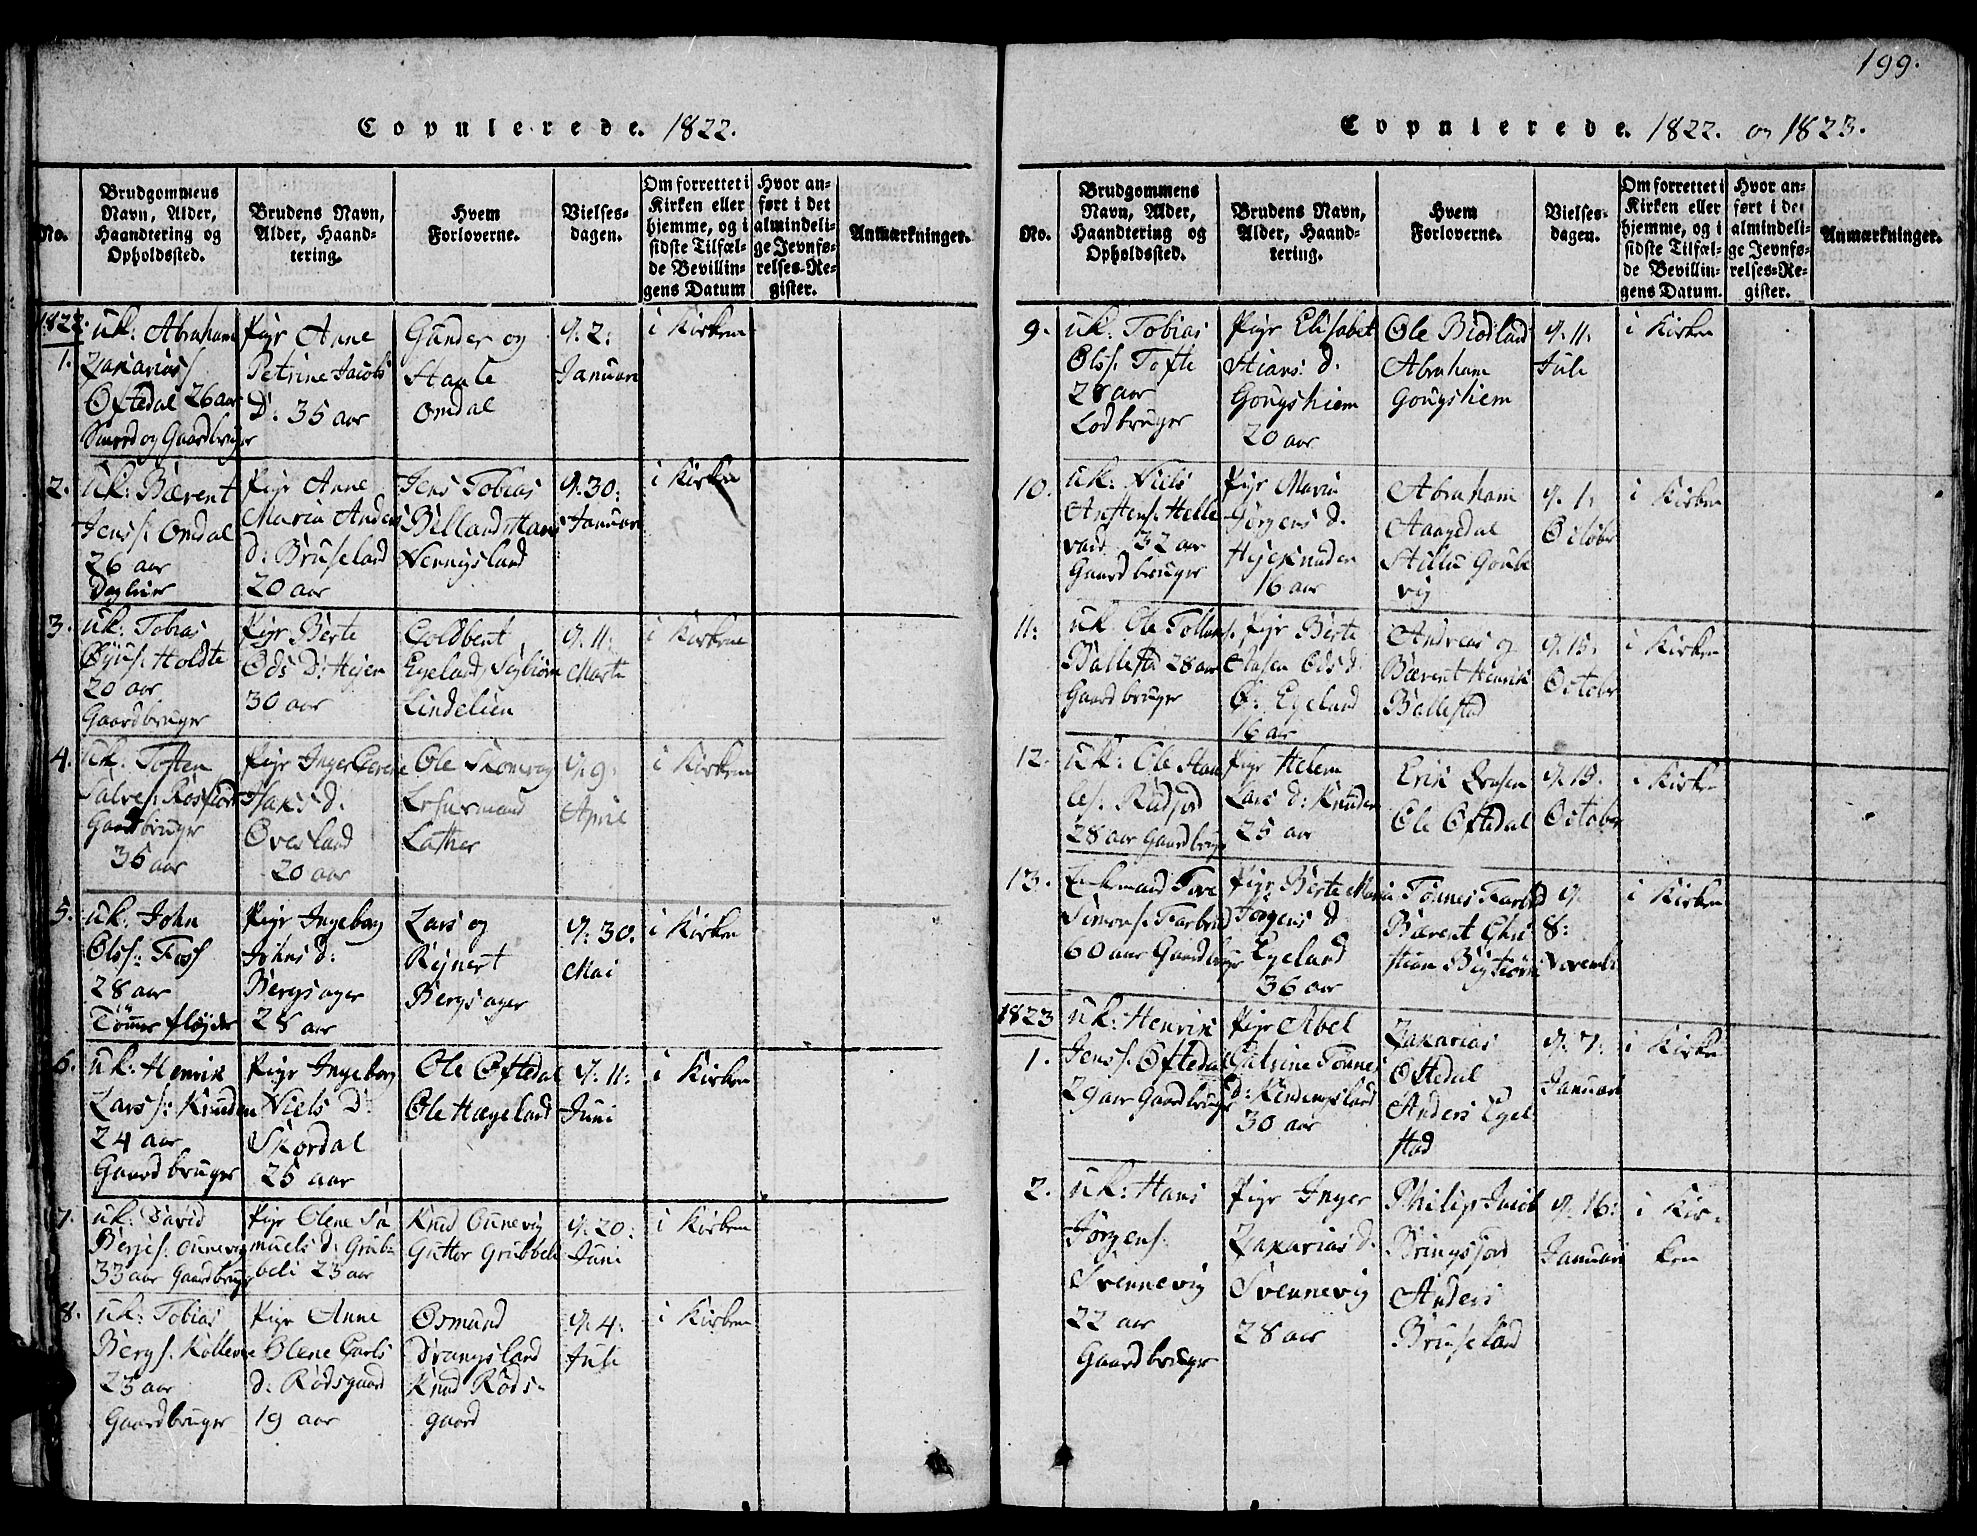 Copulerede. 1822.
No.
Brudgommens Navn, Alder, Haandtering og Opholdssted.
Brudens Navn, Alder, Haandtering.
Hvem Forloverne.
Vielsesdagen.
Om forrettet i Kirken eller hjemme, og i sidste Tilfælde Bevillingens Datum
Hvor anført i det almindelige Jevnførelses-Register.
Anmærkninger.
1822.
1.
uk: Abraham
Zakarias
Øftedal 26 aar
Smed og Gaardbruger
Pige Anne
Petrine Jacobs
D: 35 aar
Gunder og
Omdal
9. 2:
Januari
i Kirken
2.
uk: Bærent
Jens s: Omdal
26 aar
Pige Anne
Maria Anders
d: Bruseland
20 aar
Jens Tobias
9. 30:
Januari
i Kirken
3.
uk: Tobias
Holdte
20 aar
Gaardbruger
Pige Berte
30 aar
Egeland
Lindelien
9. 11:
Marts
i Kirken
4.
uk:
Gaardbruger
35 aar
Pige Inger
d:
Øvesland
20 aar
Ole
9. 9:
April
i Kirken
5.
uk: John
Ols s: Foss
28 aar
Pige Ingeborg
Johns d:
Bergsager
28 aar
Lars og
Rejnert
Bergsager
9. 30.
Mai
i Kirken
6.
uk: Henrik
Lars s: Knuden
24 aar
Gaardbruger
Pige Ingeborg
Niels D:
Skordal
25 aar
Ole Øftedal
Ole Hægeland
9. 11:
Juni
i Kirken
7.
uk: David
33 aar Gaardbruger
Pige Olene Sa
muels d: Grub
beli 23 aar
Knud Ounevig
Guttor Grubbeli
9. 20:
Juni
i Kirken
8.
uk: Tobias
23 aar
Gaardbruger
Pige Anne
Olene Carls
d: Rødsgaard
19 aar
Osmund
Drangsland
Knud Røds-
gaard
9. 4:
Juli
i Kirken
199.
Copulerede. 1822. og 1823.
No.
Brudgommens Navn, Alder, Haandtering og Opholdssted.
Brudens Navn, Alder, Haandtering.
Hvem Forloverne.
Vielsesdagen.
Om forrettet i Kirken eller hjemme, og i sidste Tilfælde Bevillingens Datum.
Hvor anført i det almindelige Jevnførelses-Register.
Anmærkninger.
9.
uk: Tobias
Ols s. Tofte
28 aar
Lodbruger
Pige Elisabet
d.
Gougshiem
20 aar
Ole Birdland
Abraham
Gougshiem
9. 11:
Juli
i Kirken
10.
uk: Niels
32 aar
Gaardbruger
Pige Maria
Jørgens d.
16 aar
Abraham
Aaagedal
9. 1:
i Kirken
11:
uk. Ole
Ballestad 28 aar
Gaardbruger
Pige Berte
Ø: Egeland
16 aar
Andreas og
Bærent Henrik
Ballestad
9. 15:
October
i Kirken
12.
uk: Ole
28 aar Gaardbruger
Pige Helene
Lars d: Knuden
25 aar
Erik
Ole Øftedal
9. 15.
October
i Kirken
13.
Enkemand Tore
Simons s.
60 aar Gaardbruger
Pige Berte Maria
Jørgens d
Egeland
36 aar
Tønnes
Bærent Chri
stian
9.
8:
November
i Kirken
1823
1.
uk: Henrik
Jens s. Øftedal
29 aar Gaardbruger
Pige Abel
Catrine Tønnes
30 aar
Zakarias
Øftedal
Anders Egel
stad
9. 7:
Januari
i Kirken
2.
uk: Hans
Jørgens s.
Svennevig
22 aar
Gaardbruger
Pige Inger
Zakarias d.
Svennevig
28 aar
Philip
Bringsjord
Anders
Bruseland
9. 16:
Januari
i Kir-
ken